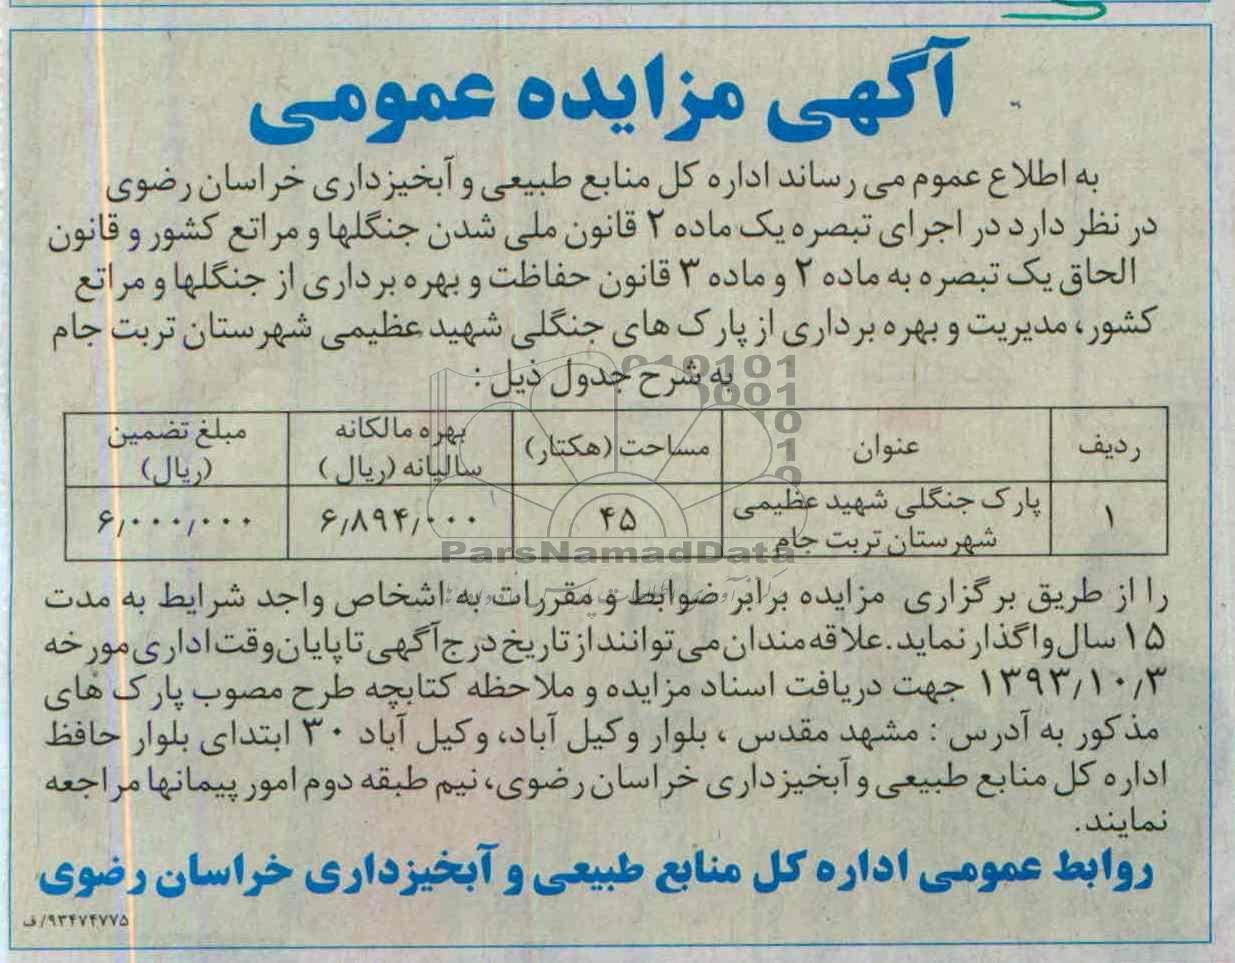 آگهی مزایده عمومی
به اطلاع عموم می رساند اداره کل منابع طبیعی و آبخیزداری خراسان رضوی
در نظر دارد در اجرای تبصره یک ماده ۲ قانون ملی شدن جنگلها و مراتع کشور و قانون
الحاق یک تبصره به ماده ۲ و ماده ۳ قانون حفاظت و بهره برداری از جنگلها و مراتع
کشور، مدیریت و بهره برداری از پارک های جنگلی شهید عظیمی شهرستان تربت جام
به شرح جدول ذیل :
ردیف عنوان مساحت (هکتار) بهره مالکانه سالیانه (ریال) مبلغ تضمین (ریال)
۱ پارک جنگلی شهید عظیمی شهرستان تربت جام ۴۵ ۶٫۸۹۴٫۰۰۰ ۶٫۰۰۰٫۰۰۰
ParsNamadData
را از طریق برگزاری مزایده برابر ضوابط و مقررات به اشخاص واجد شرایط به مدت
۱۵ سال واگذار نماید. علاقه مندان می توانند از تاریخ درج آگهی تا پایان وقت اداری مورخه
۱۳۹۳/۱۰/۳ جهت دریافت اسناد مزایده و ملاحظه کتابچه طرح مصوب پارک های
مذکور به آدرس : مشهد مقدس ، بلوار وکیل آباد، وکیل آباد ۳۰ ابتدای بلوار حافظ
اداره کل منابع طبیعی و آبخیزداری خراسان رضوی، نیم طبقه دوم امور پیمانها مراجعه
نمایند.
روابط عمومی اداره کل منابع طبیعی و آبخیزداری خراسان رضوی
۹۳۴۷۴۷۷۵/ف